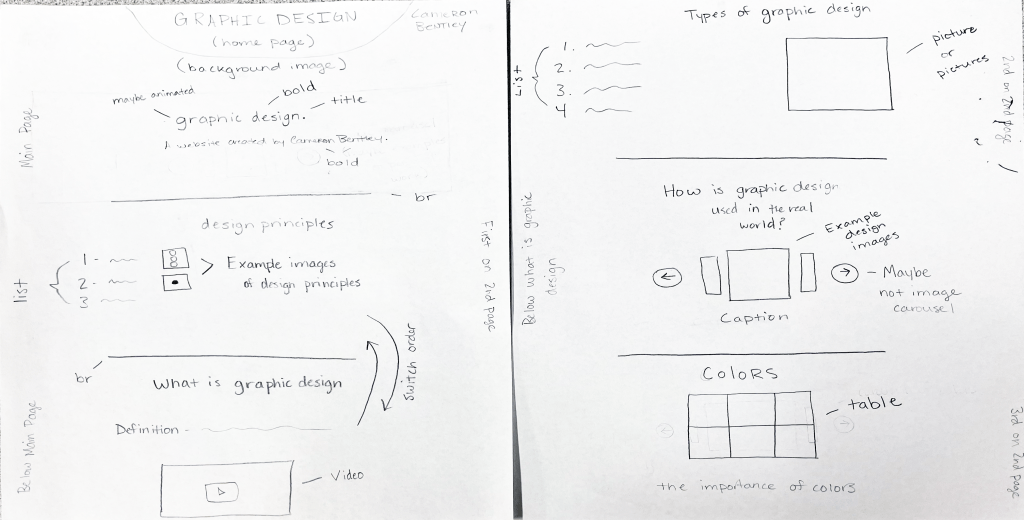 GRAPHIC DESIGN
Cameron
Bentley
(home page)
(background image)
maybe animated
bold
title
graphic design.
A website created by Cameron Bentley.
bold
Main Page
br
design principles
list
1-
2-
3
Example images
of design principles
First on 2nd page
switch order
br
What is graphic design
Definition -
Video
Below Main Page
Types of graphic design
List
1.
2.
3.
4
picture
or
pictures
2nd on 2nd page
?
How is graphic design
used in the real
world?
Example
design
images
- Maybe
not image
carousel
Caption
Below what is graphic
design
COLORS
table
the importance of colors
3rd on 2nd page